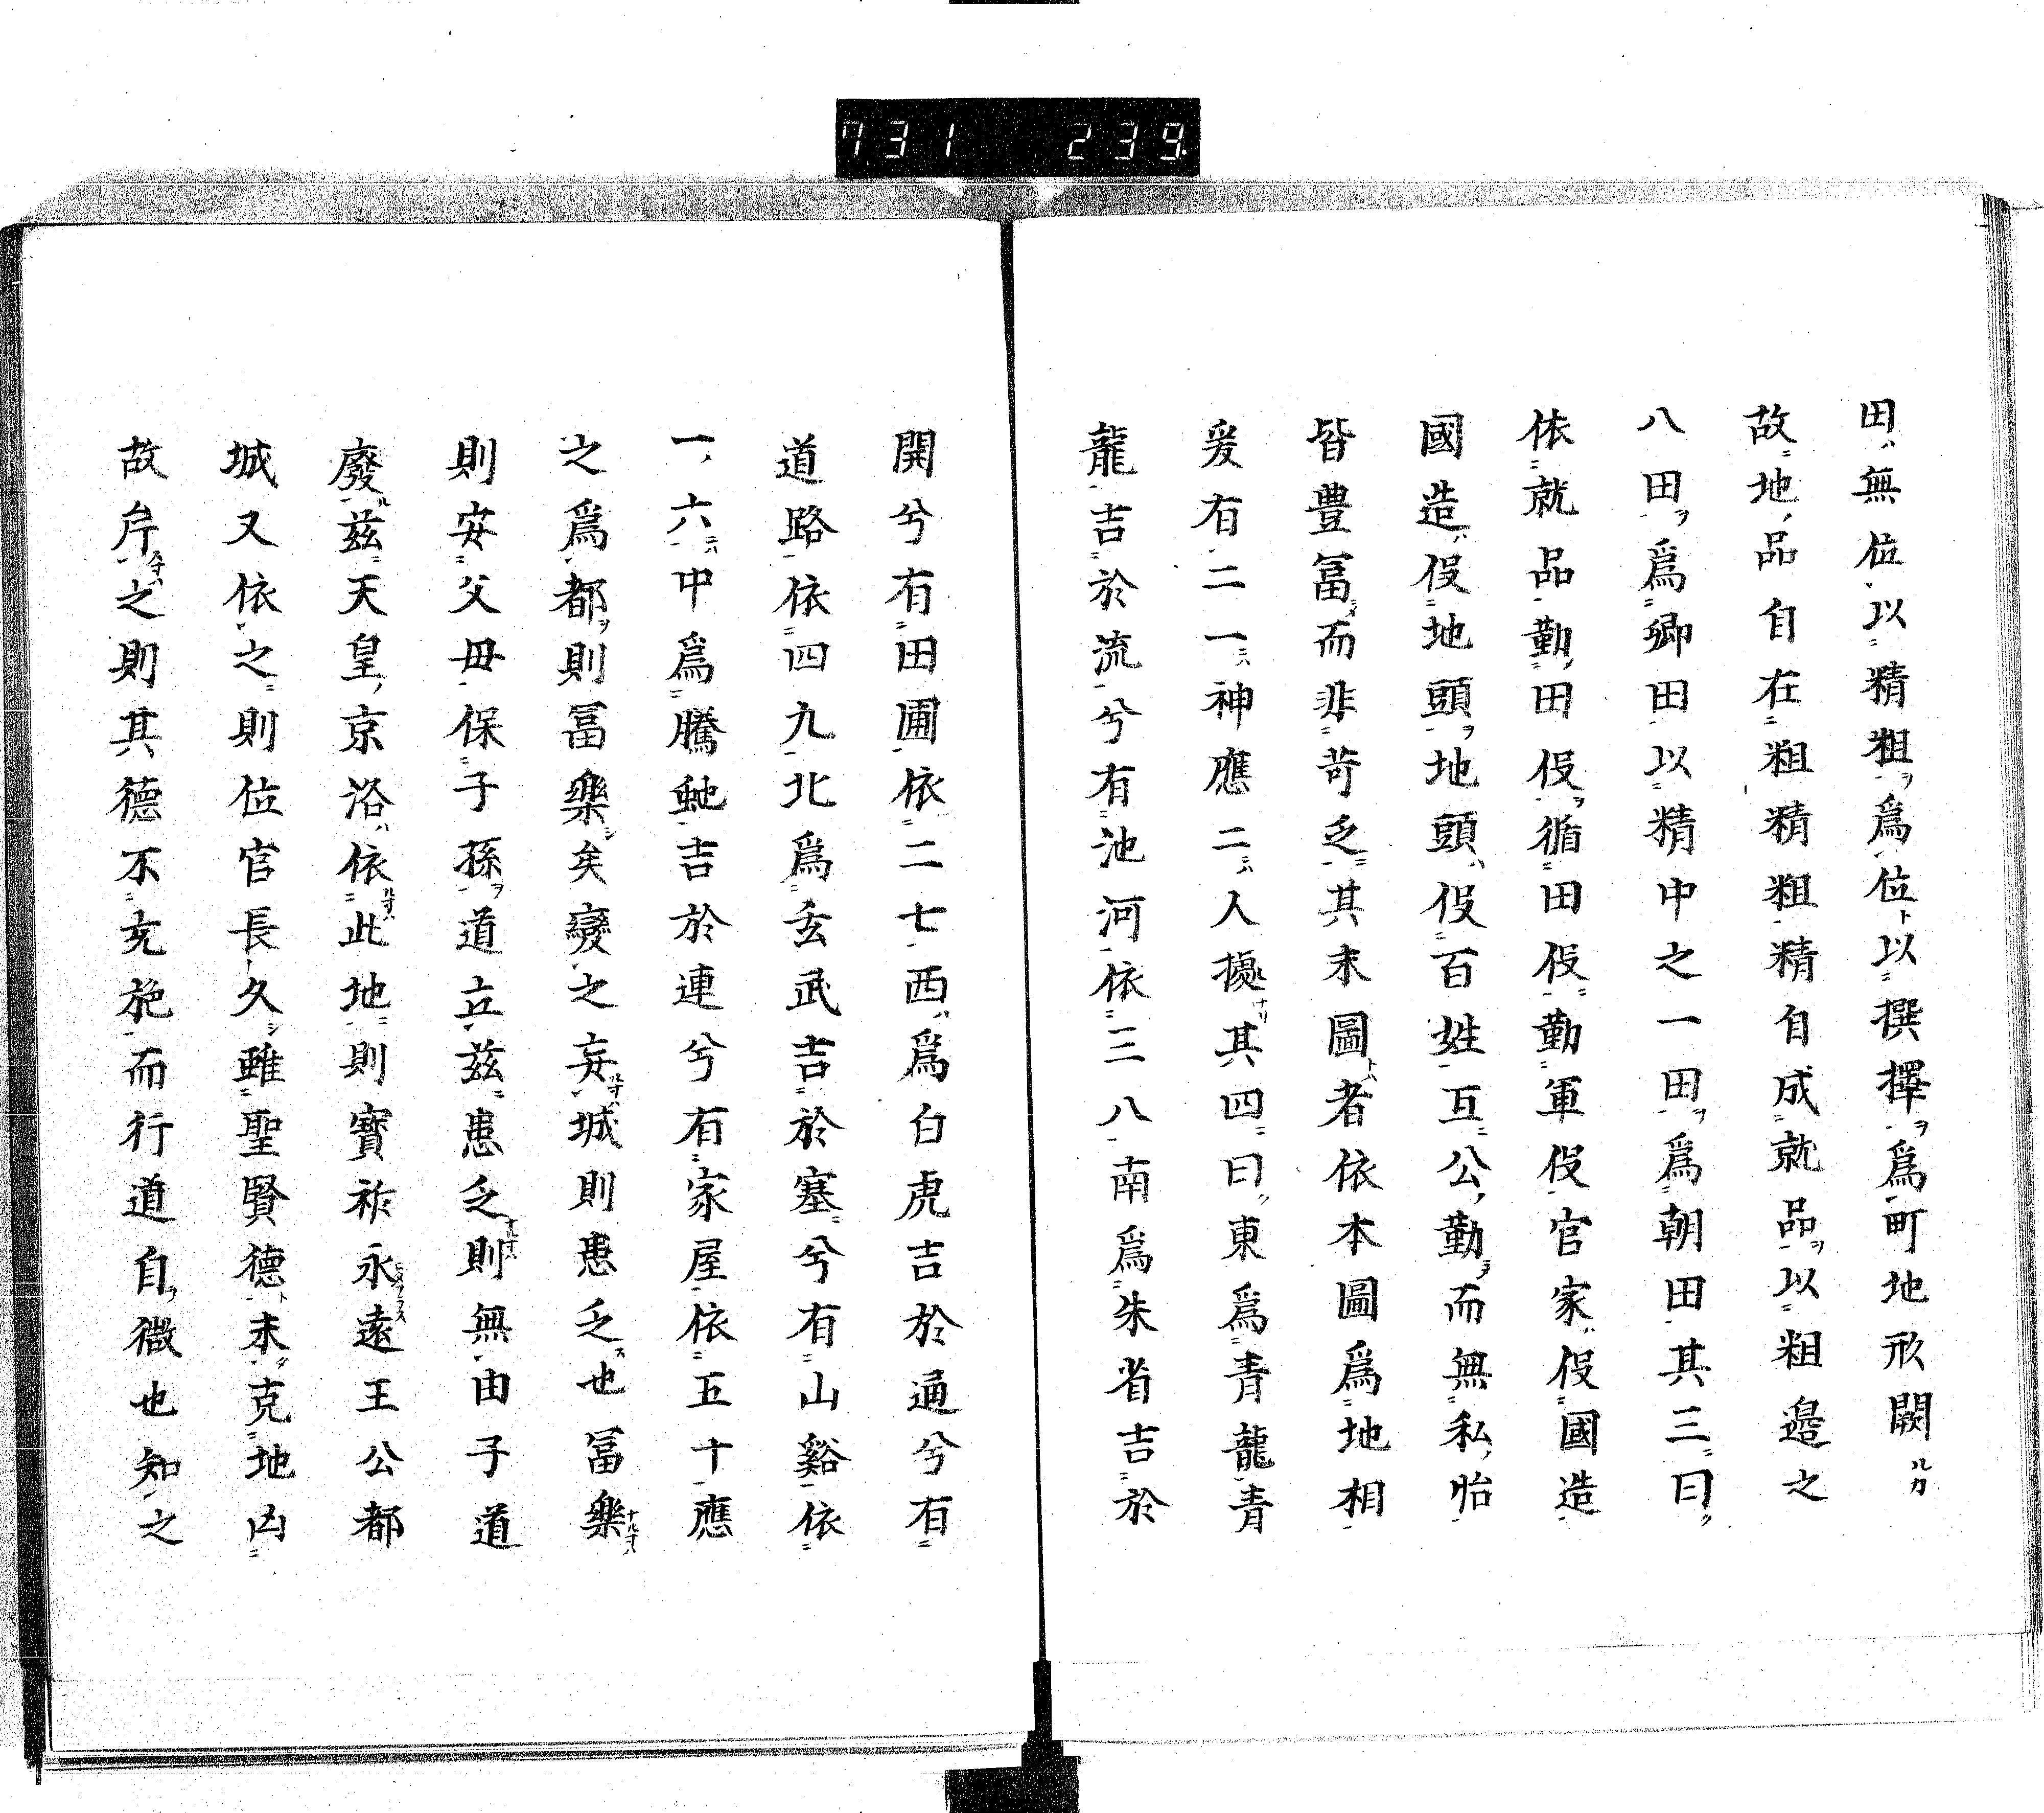 731 239
田無位以精粗爲位以撰擇爲町地形闕
故地品自在粗精粗精自成就品以粗邉之
八田爲卿田以精中之一田爲朝田其三曰
依就品勤田役循田役勤軍役官家役國造
國造役地頭地頭役百姓互公勤而無私怡
皆豊冨而非苛乏其末圖者依本圖爲地相
爰有二一神應二人擾其四曰東爲青龍青
龍吉於流兮有池河依三八南爲朱省吉於
開兮有田圃依二七西爲白虎吉於通兮有
道路依四九北爲玄武吉於塞兮有山谿依
一六中爲騰虵吉於連兮有家屋依五十應
之爲都則冨樂矣變之妄城則患乏也冨樂
則安父毋保子孫道立兹患乏則無由子道
廢兹天皇京洛依此地則寳祚永遠王公都
城又依之則位官長久雖聖賢德未克地凶
故斥之則其德不充施而行道自微也知之